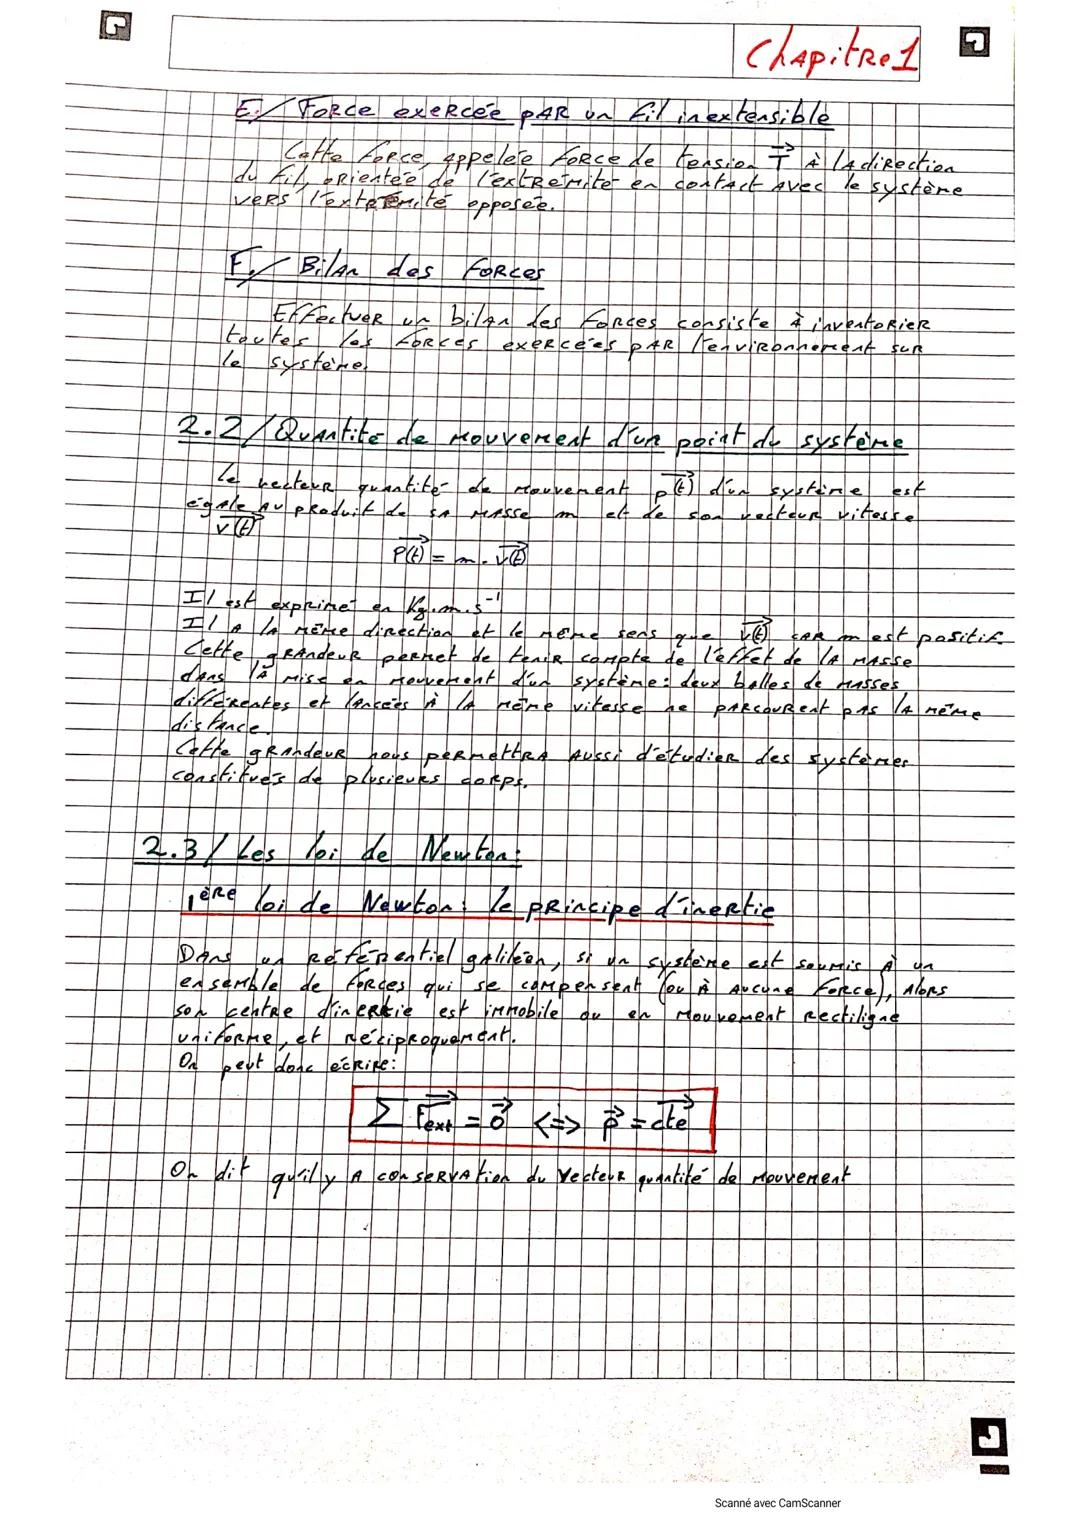 Chapitre 1
E./ Force exercée par un fil inextensible
Cette force, appelée force de tension T⃗ à la direction
du fil, orientée de l'extrémité en contact avec le système
vers l'extrémité opposée.
F./ Bilan des forces
Effectuer un bilan des forces consiste à inventorier
toutes les forces exercées par l'environnement sur
le système.
2.2/ Quantité de mouvement d'un point du système
Le vecteur quantité de mouvement p⃗(t) d'un système est
égale au produit de sa masse m et de son vecteur vitesse
v⃗(t)
P⃗(t) = m . v⃗(t)
Il est exprimé en Kg.m.s⁻¹
Il a la même direction et le même sens que v⃗(t) car m est positif.
Cette grandeur permet de tenir compte de l'effet de la masse
dans la mise en mouvement d'un système : deux balles de masses
différentes et lancées à la même vitesse ne parcourent pas la même
distance.
Cette grandeur nous permettra aussi d'étudier des systèmes
constitués de plusieurs corps.
2.3/ Les loi de Newton :
1ère loi de Newton : le principe d'inertie
Dans un référentiel galiléen, si un système est soumis à un
ensemble de forces qui se compensent (ou à aucune force), alors
son centre d'inertie est immobile ou en mouvement rectiligne
uniforme, et réciproquement.
On peut donc écrire :
∑ F⃗ext = 0⃗ <=> p⃗ = c⃗te
On dit qu'il y a conservation du vecteur quantité de mouvement
Scanné avec CamScanner